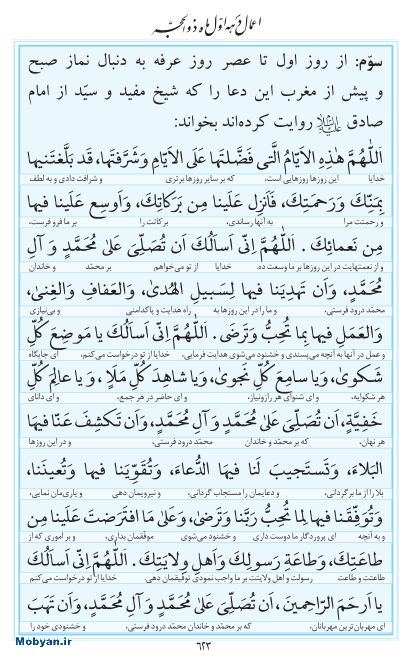 اعمال دهه اول ماه ذوالحجه
سوّم: از روز اول تا عصر روز عرفه به دنبال نماز صبح
و پیش از مغرب این دعا را که شیخ مفید و سیّد از امام
صادق علیه‌السلام روایت کرده‌اند بخواند:
اَللّٰهُمَّ هٰذِهِ الْاَیّٰامُ الَّتی فَضَّلْتَهٰا عَلَی الْاَیّٰامِ وَشَرَّفْتَهٰا، قَد بَلَّغْتَنیهٰا
خدایا این روزها روزهایی است، که بر سایر روزها برتری و شرافت دادی و به لطف
بِمَنِّکَ وَرَحْمَتِکَ، فَاَنْزِل عَلَینٰا مِن بَرَکٰاتِکَ، وَاَوسِع عَلَینٰا فیهٰا
و رحمتت مرا به آنها رساندی، برکاتت را بر ما فرو فرست،
مِن نَعمٰائِکَ . اَللّٰهُمَّ اِنّی اَسأَلُکَ اَن تُصَلِّیَ عَلیٰ مُحَمَّدٍ وَ آلِ
و از نعمتهایت در این روزها بر ما وسعت ده. خدایا از تو می‌خواهم بر محمّد و خاندان
مُحَمَّدٍ، وَاَن تَهدِیَنٰا فیهٰا لِسَبیلِ الْهُدیٰ، وَالعَفافِ وَالغِنیٰ،
محمّد درود فرستی، و ما را در این روزها به راه هدایت و پاکدامنی و بی‌نیازی
وَالعَمَلِ فیهٰا بِمٰا تُحِبُّ وَتَرضیٰ . اَللّٰهُمَّ اِنّی اَسأَلُکَ یٰا مَوضِعَ کُلِّ
و عمل در آنها به آنچه می‌پسندی و خشنود می‌شوی هدایت فرمایی، خدایا از تو درخواست می‌کنم، ای جایگاه
شَکویٰ، وَیٰا سٰامِعَ کُلِّ نَجویٰ، وَیٰا شٰاهِدَ کُلِّ مَلَأٍ، وَ یٰا عٰالِمَ کُلِّ
هر شکوایه، و ای شنوای هر رازونیاز، و ای حاضر در هر جمع، و ای دانای
خَفِیَّةٍ، اَن تُصَلِّیَ عَلیٰ مُحَمَّدٍ وَ آلِ مُحَمَّدٍ، وَاَن تَکشِفَ عَنّٰا فیهَا
هر نهان، که بر محمّد و خاندان محمّد درود فرستی، و در این روزها
البَلاءَ، وَتَستَجیبَ لَنٰا فیهَا الدُّعٰاءَ، وَتُقَوِّیَنٰا فیهٰا وَتُعینَنٰا،
بلا را از ما برگردانی، و دعایمان را مستجاب گردانی، و نیرویمان دهی و یاری‌مان نمایی،
وَتُوَفِّقَنٰا فیهٰا لِمٰا تُحِبُّ رَبَّنٰا وَتَرضیٰ، وَعَلیٰ مَا افتَرَضتَ عَلَینٰا مِن
و به آنچه ای پروردگار ما دوست داری و خشنود می‌شوی موفقمان بداری، و بر اموری که از
طٰاعَتِکَ، وَطٰاعَةِ رَسولِکَ وَاَهلِ وِلٰایَتِکَ . اَللّٰهُمَّ اِنّی اَسأَلُکَ
طاعتت و طاعت رسولت و اهل ولایتت بر ما واجب نمودی توفیقمان دهی. خدایا از تو درخواست می‌کنم
یٰا اَرحَمَ الرّٰاحِمینَ، اَن تُصَلِّیَ عَلیٰ مُحَمَّدٍ وَ آلِ مُحَمَّدٍ، وَاَن تَهَبَ
ای مهربان‌ترین مهربانان، که بر محمّد و خاندان محمّد درود فرستی، و خشنودی خود را
۶۲۳
Mobyan.ir